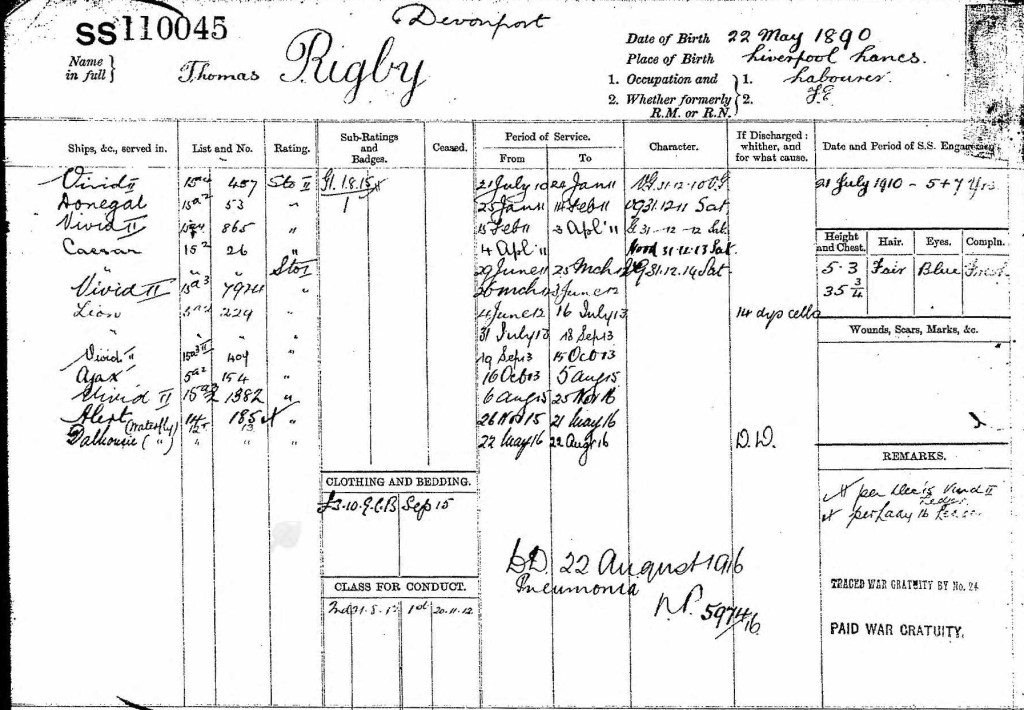 Devonport
SS 110045
Name in full } Thomas Rigby
Date of Birth 22 May 1890
Place of Birth Liverpool Lancs.
1. Occupation and } 1. Labourer
2. Whether formerly R.M. or R.N. } 2.
Ships, &c., served in. List and No. Rating. Sub-Ratings and Badges. Ceased. Period of Service. From To Character. If Discharged: whither, and for what cause. Date and Period of S.S. Engagement
Vivid II 15a2 457 Sto II G1. 1.8.15 21 July 10 24 Jan 11 V.G. 31.12.10 V.G 21 July 1910 - 5+7 Yrs
Donegal 15a2 53 " 1 25 Jan 11 14 Feb 11 VG 31.12.11 Sat
Vivid II 865 " 15 Feb 11 3 Apl '11 G. 31-12-12 Sat
Caesar 15a 26 " 4 Apl '11 Good 31.12.13 Sat.
" " " Sto I 29 June 11 25 Mch 12 VG 31.12.14 Sat
Vivid II 15a3 7974 " 26 Mch 12 3 June 12
Lion 5a2 229 " 4 June 12 16 July 13 14 dys cells
" " " " 31 July 13 18 Sep 13
Vivid II 15a3 409 " 19 Sep 13 15 Oct 13
Ajax 5a2 154 " 16 Oct 13 5 Aug 15
Vivid II 15a3 1382 " 6 Aug 15 25 Nov 15
Alert (Waterfly) 14 185 " 26 Nov 15 21 May 16
Dalhousie ( " ) " " " 22 May 16 22 Aug 16 D.D.
Height and Chest. Hair. Eyes. Compln.
5.3 Fair Blue Fresh
35 3/4
Wounds, Scars, Marks, &c.
REMARKS.
per Vivid II
Ledger
CLOTHING AND BEDDING.
£3.10. G.C.B Sep 15
CLASS FOR CONDUCT.
2nd 1st 20.11.12
DD 22 August 1916
Pneumonia
N.P. 5974/16.
TRACED WAR GRATUITY BY No. 24
PAID WAR GRATUITY.